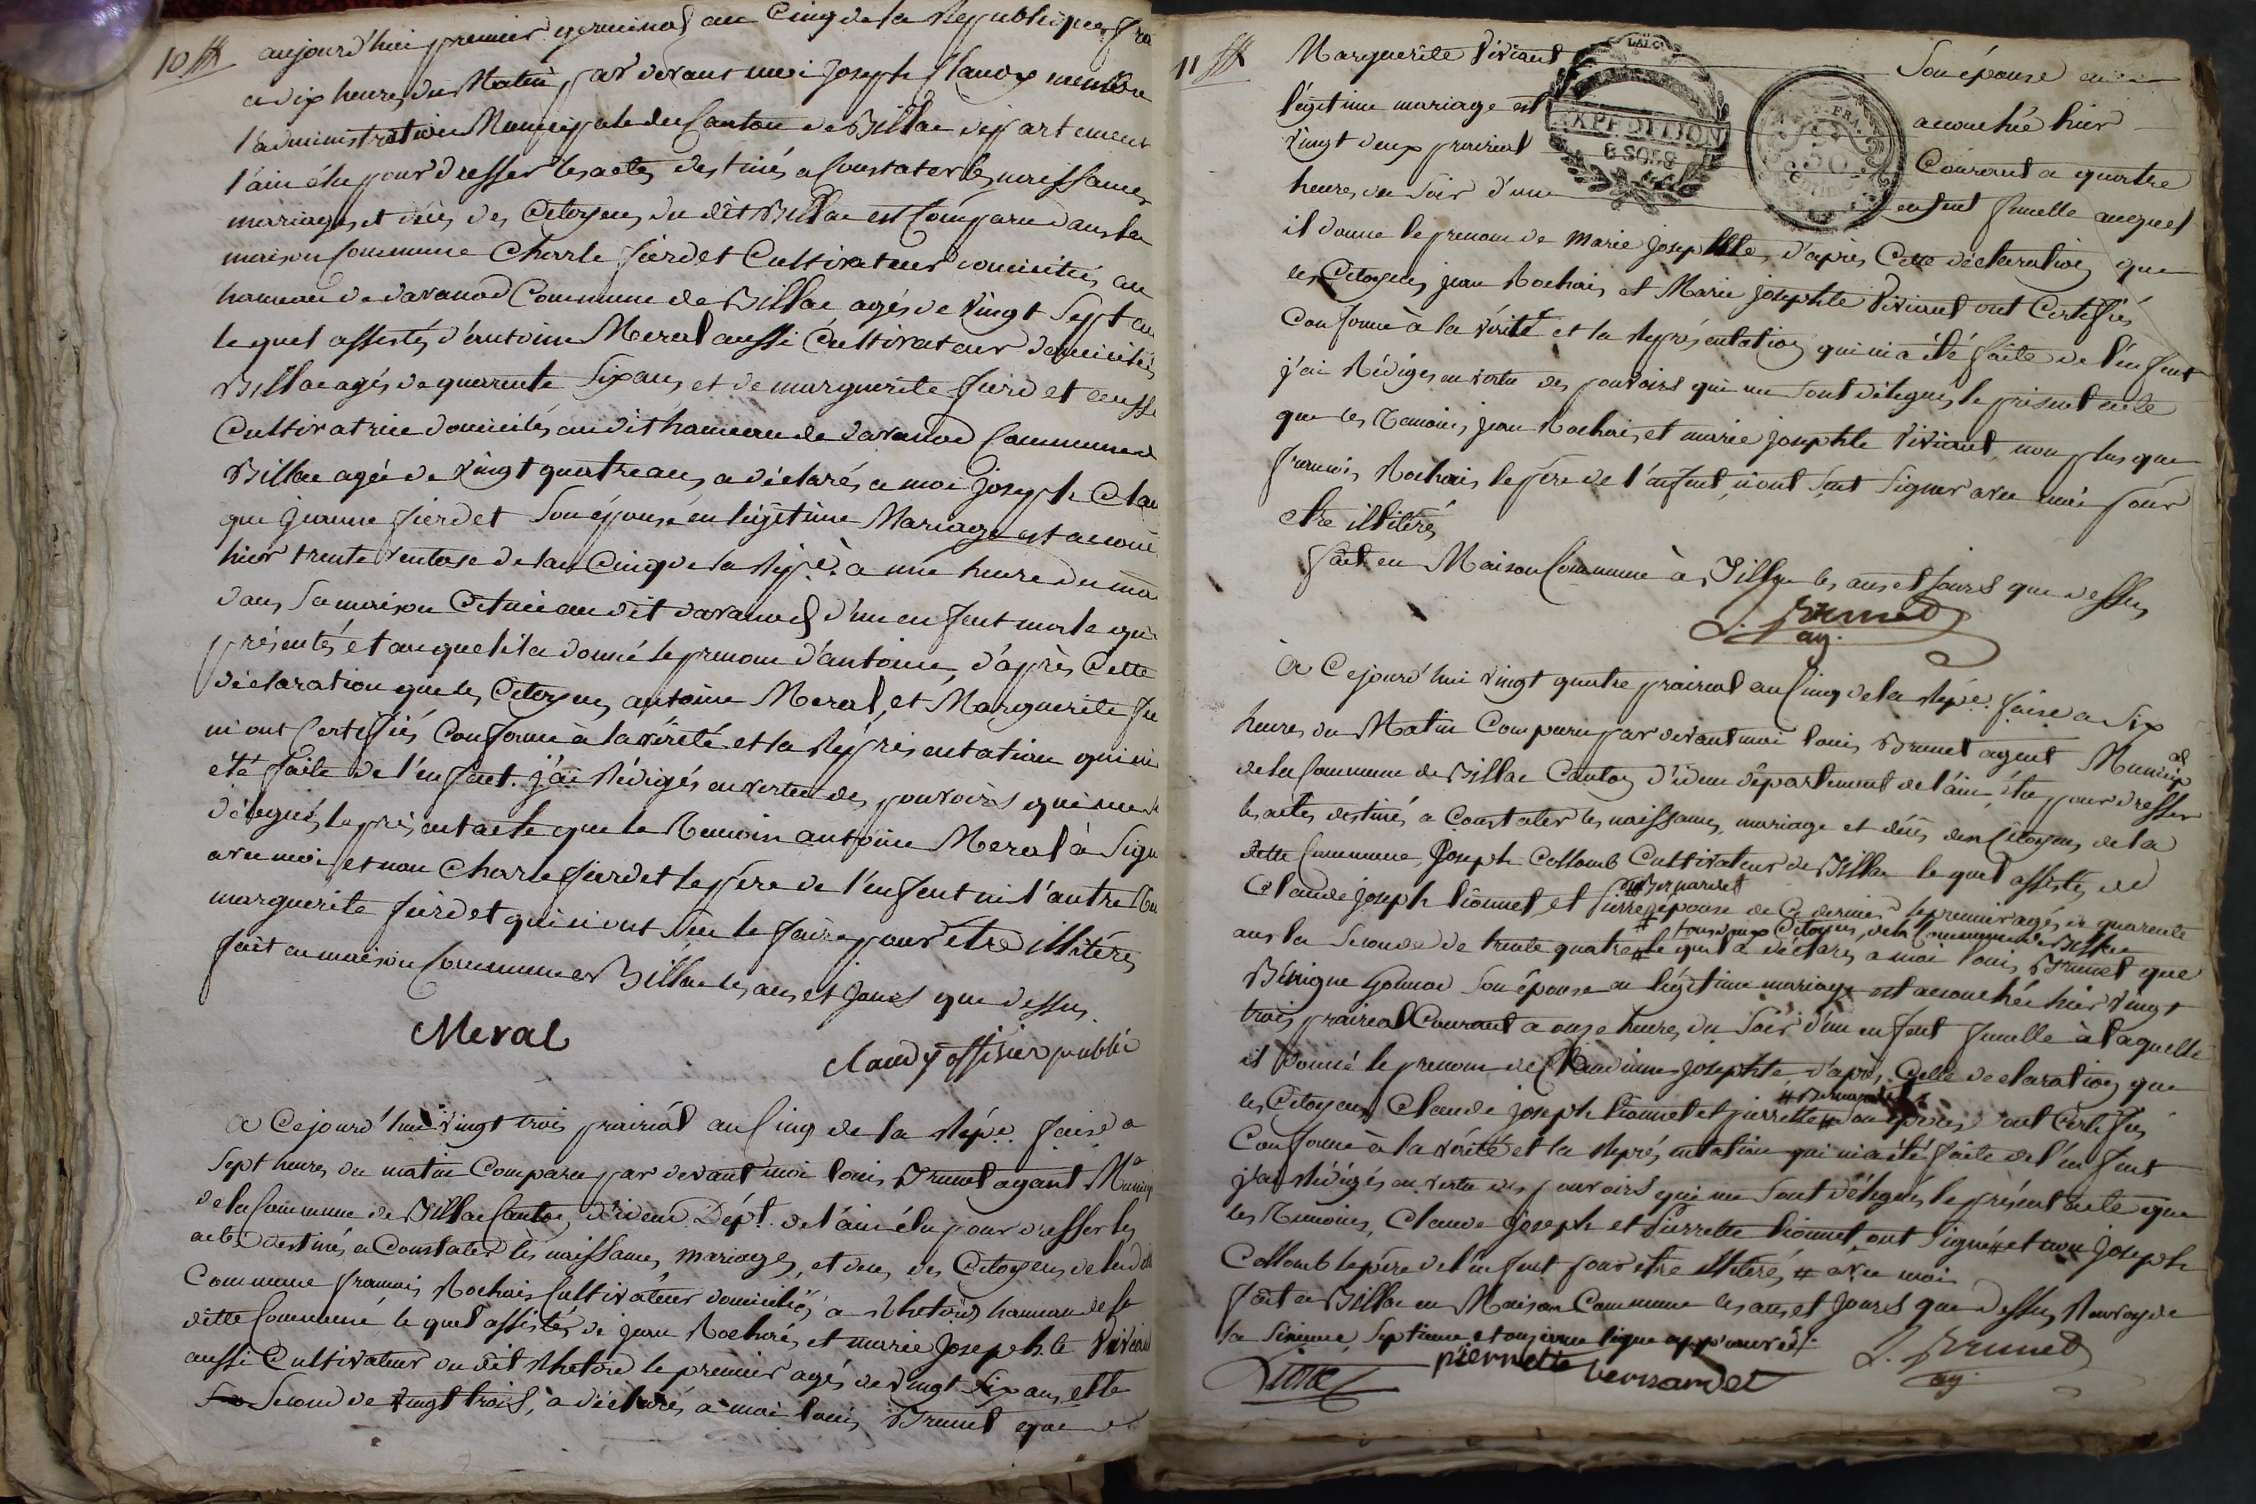 10 ff
aujourd'hui premier germinal an Cinq de la Republique fra
a dix heures du Matin par devant moi Joseph Claudy membre
l'administration Municipale du Canton de Billac departement
l'ain élu pour dresser les actes destinés a Constater les naissances
mariages et décès des Citoyens du dit Billac est Comparu dans la
maison Commune Charle fierdet Cultivateur domicilié au
hameau de davanod Commune de Billac agés de vingt Sept an
le quel assistés d'antoine Meral aussi Cultivateur domiciliés
Billac agés de quarente Six ans, et de marguerite fierdet aussi
Cultivatrice domiciliés au dit hameau de davanod Commune d
Billac agée de vingt quatre ans, a déclarés a moi Joseph Clau
que jeanne fierdet Son épouse en légitime Mariage est accouc
hier trente ventose de l'an Cinq de la Rép.e à une heure du ma
dans Sa maison Cituée au dit davanod d'un enfent male qu
présentés et au quel il a donné le prenom d'antoine, d'après Cette
déclaration que les Citoyens antoine Meral, et Marguerite fie
m'ont Certifiés Conforme à la vérité et la Représentation qui m
été faite de l'enfent. j'ai Rédigés en vertu des pouvoirs qui me
délégués, le présent acte que le Temoin antoine Meral à Sign
avec moi et non Charle fierdet le père de l'enfent ni l'autre
marguerite fierdet qui n'ont Seu le faire pour être illitérés
fait en maison Commune Billac les ans et jours que dessus.
Meral
Claudy offisier public
a Cejourd'hui vingt trois prairial an Cinq de la Rép.e faise a
Sept heures du matin Comparu par devant moi louis Brunet agant Municip
de la Commune de Billac Canton d'ideme Dép.t de l'ain élu pour dresser les
actes destinés a Constater les naissances, mariages, et deces, des Citoyens de la d
Commune francois Rochais Cultivateur domicilié a Rhetord hameau de la
ditte Commune, le quel assistés de jean Rochais, et marie Josephte Viviant
aussi Cultivateur du dit Rhetord le premier agés de vingt Six ans, et le
Second de vingt trois, à déclarés a moi louis Brunet que
11 ff
Marguerite Viviant Son épouse en
légitime mariage est accouchée hier
vingt deux prairial Courant a quatre
heures du Soir d'un enfent femelle auquel
LALOI
EXPEDITION
8 SOLS
50
il donne le prenom de Marie Josephte, d'après Cette déclaration que
les Citoyens jean Rochais et Marie josephte Viviant ont Certifiés
Conforme à la vérité et la Représentation qui m'a été faite de l'enfent
j'ai Rédigés en vertu des pouvoirs qui me Sont délégués le présent acte
que les Temoins, jean Rochais, et marie josephte Viviant, non plus que
francois Rochais, le père de l'enfent, n'ont Signer avec moi pour
etre illitéré
fait en Maison Commune à Billac les ans et jours que dessus
L. Brunet
ag.
à Cejourd'hui vingt quatre prairial an Cinq de la Rép.e faise a Six
heures du Matin Comparu par devant moi louis Brunet agent Municipal
de la Commune de Billac Canton d'ideme département de l'ain, élu pour dresser
les actes destinés a Constater les naissances, mariage et décès des Citoyens, de la
ditte Commune, Joseph Collomb Cultivateur de Billac le quel assistés de
# Bernardet
Claude Joseph lionnet, et Pierrette # épouse de Ce dernier le premier agés de quarente
# tous deux Citoyens de la Commune de Billac
ans la Seconde de trente quatre # le quel a déclarés a moi louis Brunet que
Bénigne Gonnod Son épouse en légitime mariage est accouchée hier vingt
trois prairial Courant a onze heures, du Soir d'un enfent femelle à laquelle
il donné le prenom de Claudinne Josephte d'après Cette declaration que
# Bernardet
les Citoyens Claude joseph lionnet et pierrette # son épouse ont Certifiés
Conforme à la vérité et la Représentation qui m'a été faite de l'enfent
j'ai Rédigés en vertu des pouvoirs qui me Sont délégués le présent acte que
les Temoins, Claude Joseph et Pierrette lionnet ont Signés # et non Joseph
Collomb le père de l'enfent pour etre illitéré, # avec moi
fait a Billac en Maison Commune les ans et jours que dessus,
la Sixieme, Septieme et onzieme ligne approuvées
pierrette bernardet
L. Brunet
ag.